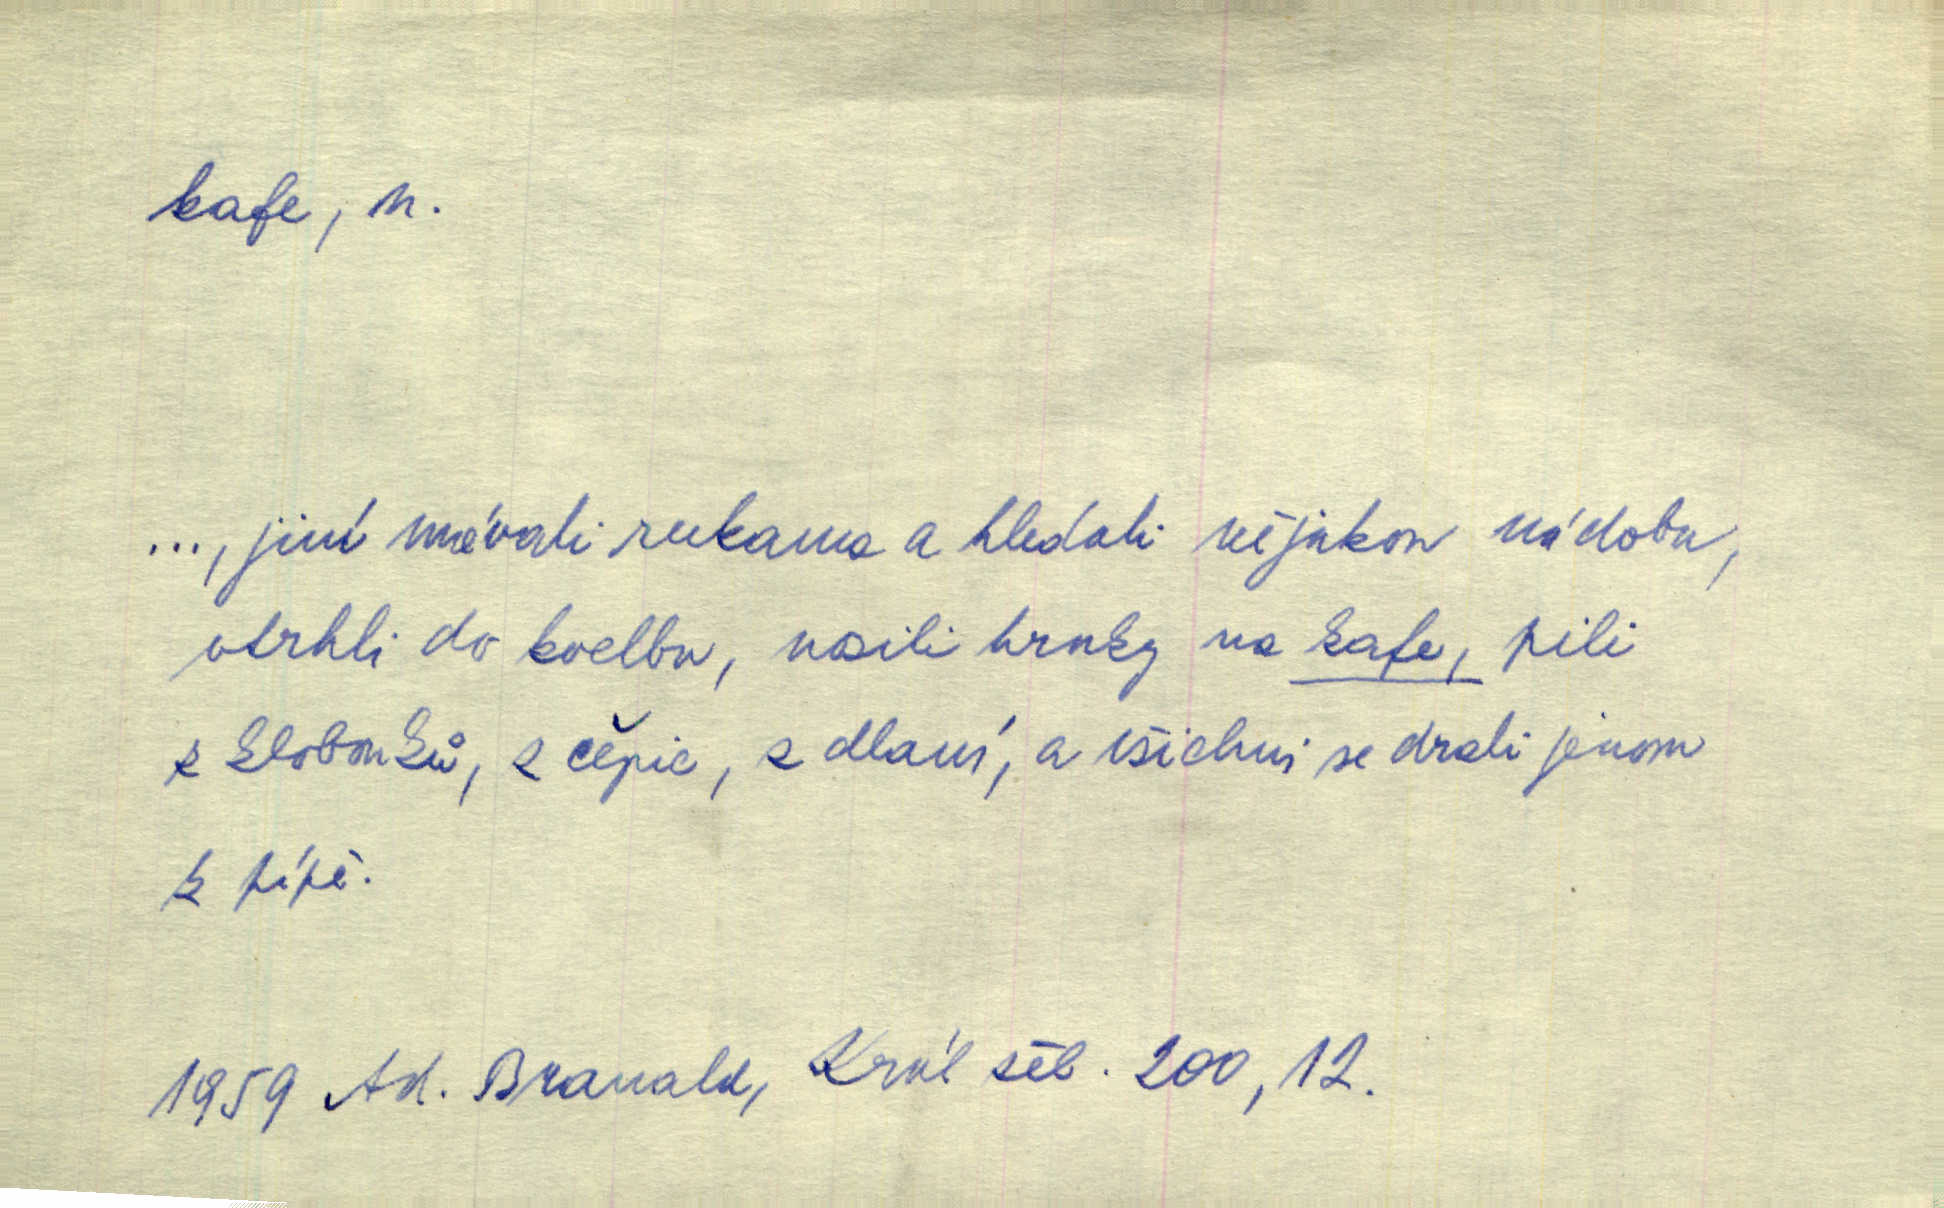 kafe, n.
..., jiní mávali rukama a hledali nějakou nádobu,
vtrhli do kvelbu, nosili hrnky na kafe, pili
z klobouků, z čepic, z dlaní, a všichni se drali jenom
k pípě.
1959 Ad. Branald, Král žel. 200, 12.